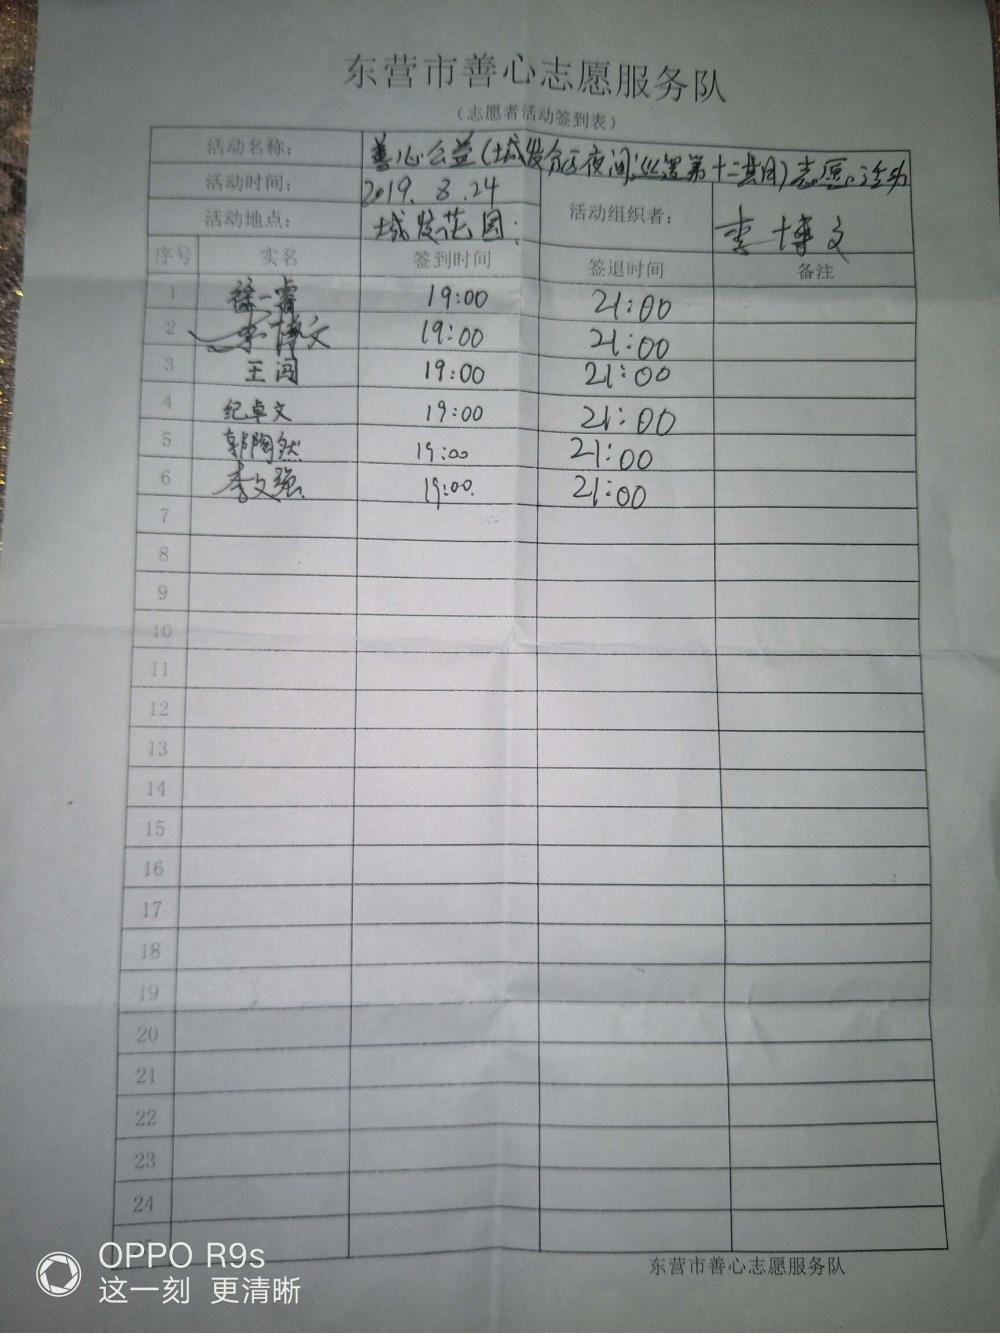 东营市善心志愿服务队
（志愿者活动签到表）
活动名称： 善心公益（城发社区夜间巡逻第十二期）志愿活动
活动时间： 2019.8.24
活动地点： 城发花园 活动组织者： 李博文
序号 实名 签到时间 签退时间 备注
1 徐一睿 19:00 21:00
2 李博文 19:00 21:00
3 王闯 19:00 21:00
4 纪卓文 19:00 21:00
5 郭陶然 19:00 21:00
6 李文强 19:00 21:00
7
8
9
10
11
12
13
14
15
16
17
18
19
20
21
22
23
24
东营市善心志愿服务队
OPPO R9s
这一刻 更清晰